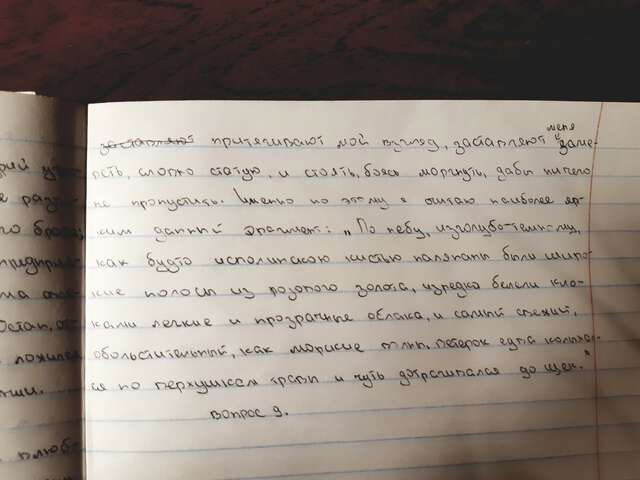 заставляют притягивают мой взгляд, заставляют меня заме-
реть, словно статую, и стоять, боясь моргнуть, дабы ничего
не пропустить. Именно по этому я считаю наиболее яр-
ким данный фрагмент: „По небу, изголуба-темному,
как будто исполинскою кистью наляпаны были широ-
кие полосы из розового золота, изредка белели кло-
ками легкие и прозрачные облака, и самый свежий,
обольстительный, как морские волны, ветерок едва колыхал-
ся по верхушкам травы и чуть дотрагивался до щек."
вопрос 9.
рий
е разм
го бро
придпри
Остап, от
ложился
влюбл